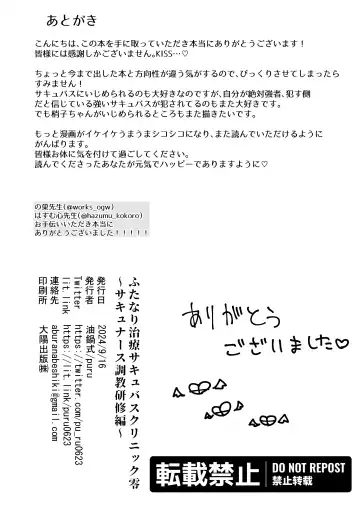 あとがき
こんにちは、この本を手に取っていただき本当にありがとうございます！
皆様には感謝しかございません。KISS…♡
ちょっと今まで出した本と方向性が違う気がするので、びっくりさせてしまったら
すみません！
サキュバスにいじめられるのも大好きなのですが、自分が絶対強者、犯す側
だと信じている強いサキュバスが犯されてるのもまた大好きです。
でも梢子ちゃんがいじめられるところもまた描きたいです。
もっと漫画がイケイケうまうまシコシコになり、また読んでいただけるように
がんばります。
皆様お体に気を付けて過ごしてください。
読んでくださったあなたが元気でハッピーでありますように♡
の栄先生(@works_ogw)
はずむ心先生(@hazumu_kokoro)
お手伝いいただき本当に
ありがとうございました！！！！！
ふたなり治療サキュバスクリニック零
～サキュナース調教研修編～
発行日 2024/9/16
発行者 油鍋式/puru
Twitter https://twitter.com/pu_ru0623
lit.link https://lit.link/puru0623
連絡先 aburanabeshiki@gmail.com
印刷所 大陽出版㈱
ありがとう
ございました♡
転載禁止
DO NOT REPOST
禁止转载